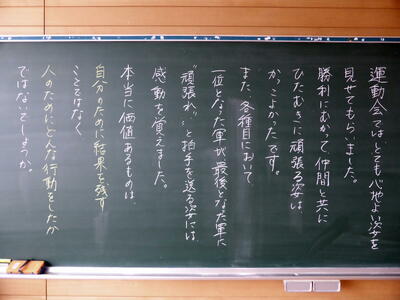 運動会では、とても心地よい姿を
見せてもらいました。
勝利にむかって、仲間と共に
ひたむきに頑張る姿は、
かっこよかったです。
また、各種目において、
一位となった軍が、最後となった軍に
"頑張れ"と拍手を送る姿には、
感動を覚えました。
本当に価値あるものは、
自分のために結果を残す
ことではなく
人のためにどんな行動をしたか
ではないでしょうか。